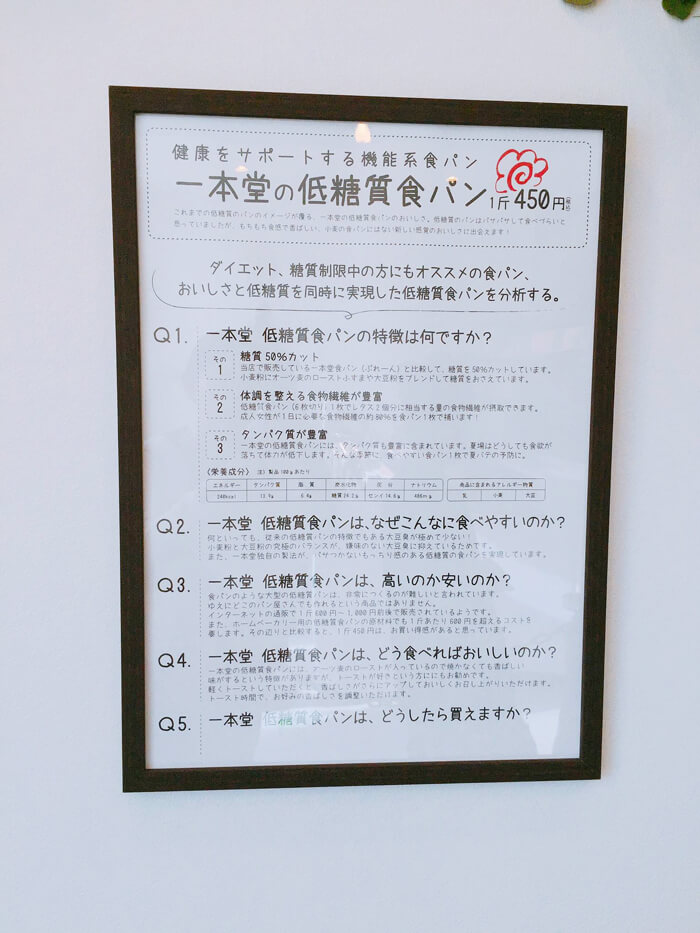 健康をサポートする機能系食パン
一本堂の低糖質食パン 1斤450円(税込)
これまでの低糖質のパンのイメージが覆る、一本堂の低糖質食パンのおいしさ。低糖質のパンはパサパサして食べづらいと
思っていましたが、もちもち食感で香ばしい、小麦の食パンにはない新しい感覚のおいしさに出会えます!
ダイエット、糖質制限中の方にもオススメの食パン、
おいしさと低糖質を同時に実現した低糖質食パンを分析する。
Q1. 一本堂 低糖質食パンの特徴は何ですか?
その1 糖質50%カット
当店で販売している一本堂食パン(ぷれーん)と比較して、糖質を50%カットしています。
小麦粉にオーツ麦のローストふすまや大豆粉をブレンドして糖質をおさえています。
その2 体調を整える食物繊維が豊富
低糖質食パン(6枚切り)1枚でレタス2個分に相当する量の食物繊維が摂取できます。
成人女性が1日に必要な食物繊維の約80%を食パン1枚で補います!
その3 タンパク質が豊富
一本堂の低糖質食パンには、タンパク質も豊富に含まれています。夏場はどうしても食欲が
落ちて体力が低下します。そんな季節に、食べやすい食パン1枚で夏バテの予防に。
〈栄養成分〉 注)製品100gあたり
エネルギー タンパク質 脂質 炭水化物 灰分 ナトリウム 商品に含まれるアレルギー物質
248kcal 12.9g 6.4g 糖質24.2g センイ14.6g 486mg 乳 小麦 大豆
Q2. 一本堂 低糖質食パンは、なぜこんなに食べやすいのか?
何といっても、従来の低糖質パンの特徴でもある大豆臭が極めて少ない!
小麦粉と大豆粉の究極のバランスが、嫌味のない大豆臭に抑えているためです。
また、一本堂独自の製法が、パサつかないもっちり感のある低糖質の食パンを実現しています。
Q3. 一本堂 低糖質食パンは、高いのか安いのか?
食パンのような大型の低糖質パンは、非常につくるのが難しいと言われています。
ゆえにどこのパン屋さんでも作れるという商品ではありません。
インターネットの通販で1斤600円〜1,000円前後で販売されているようです。
また、ホームベーカリー用の低糖質食パンの原材料でも1斤あたり600円を超えるコストを
要します。その辺りと比較すると、1斤450円は、お買い得感があると思っています。
Q4. 一本堂 低糖質食パンは、どう食べればおいしいのか?
一本堂の低糖質食パンには、オーツ麦のローストが入っているので焼かなくても香ばしい
味がするという特徴がありますが、トーストが好きという方にもお勧めです。
軽くトーストしていただくと、香ばしさがさらにアップしておいしくお召し上がりいただけます。
トースト時間で、お好みの香ばしさを調整いただけます。
Q5. 一本堂 低糖質食パンは、どうしたら買えますか?